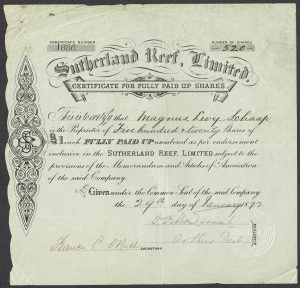 CERTIFICATE NUMBER
NUMBER OF SHARES
1866
520
Sutherland Reef, Limited.
CERTIFICATE FOR FULLY PAID UP SHARES
This is to certify that Magnus Levy Schaap
is the Proprietor of Five hundred & twenty Shares of
£1 each FULLY PAID UP numbered as per endorsement
inclusive in the SUTHERLAND REEF, LIMITED subject to the
provisions of the Memorandum and Articles of Association
of the said Company.
Given under the Common Seal of the said company
the 29th day of January 1892
SECRETARY